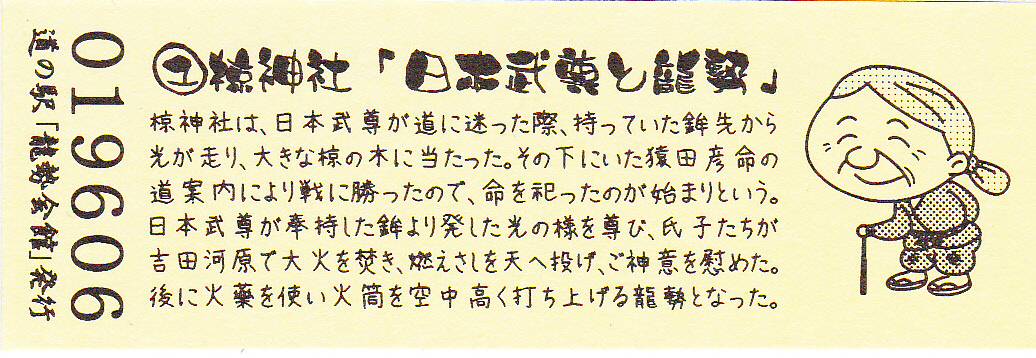 ㊏椋神社「日本武尊と龍勢」
椋神社は、日本武尊が道に迷った際、持っていた鉾先から
光が走り、大きな椋の木に当たった。その下にいた猿田彦命の
道案内により戦に勝ったので、命を祀ったのが始まりという。
日本武尊が奉持した鉾より発した光の様を尊び、氏子たちが
吉田河原で大火を焚き、燃えさしを天へ投げ、ご神意を慰めた。
後に火薬を使い火筒を空中高く打ち上げる龍勢となった。
019606
道の駅「龍勢会館」発行